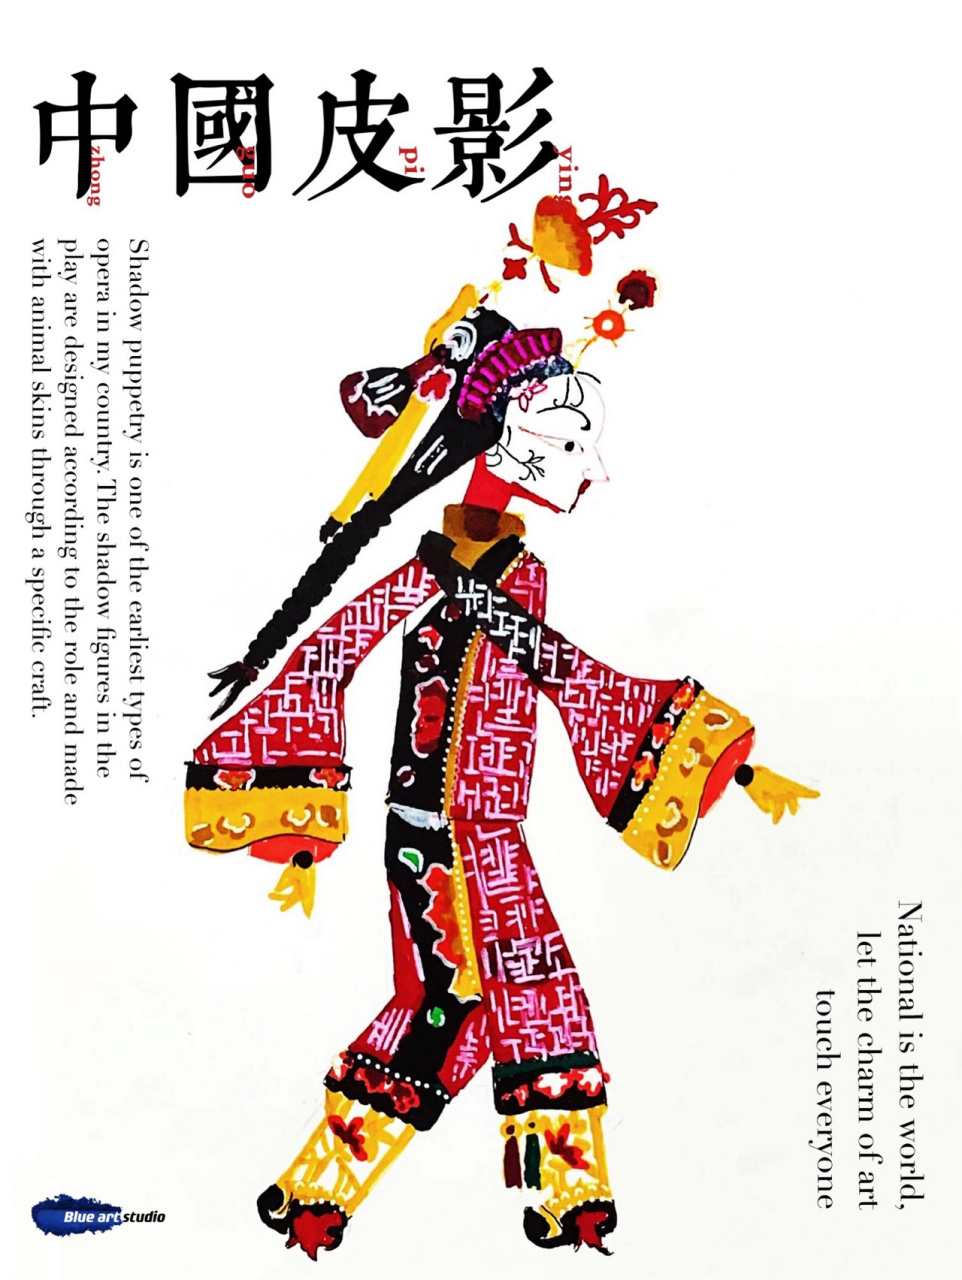 中國皮影
zhong guo pi ying
Shadow puppetry is one of the earliest types of
opera in my country. The shadow figures in the
play are designed according to the role and made
with animal skins through a specific craft.
National is the world,
let the charm of art
touch everyone
Blue art studio